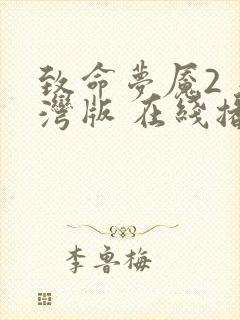 致命夢魇2
灣版 在綫播
李鲁梅